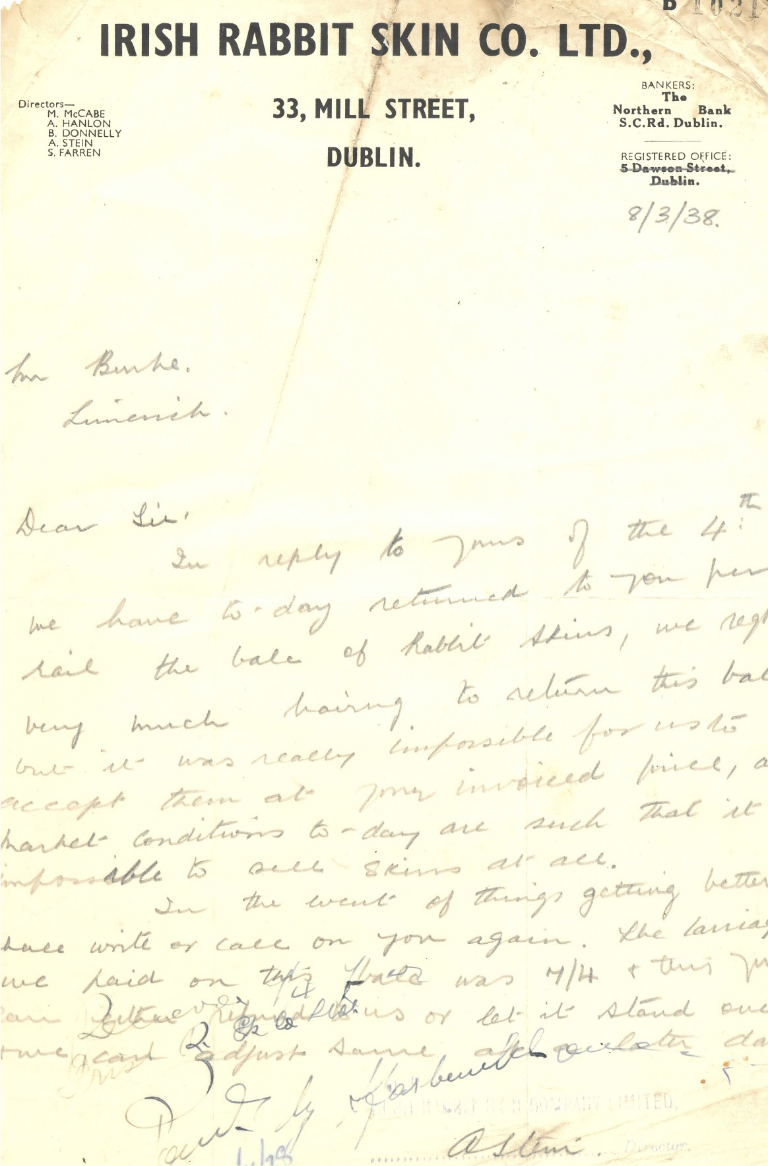 B 1021
IRISH RABBIT SKIN CO. LTD.,
33, MILL STREET,
DUBLIN.
Directors—
M. McCABE
A. HANLON
B. DONNELLY
A. STEIN
S. FARREN
BANKERS:
The
Northern Bank
S.C.Rd. Dublin.
REGISTERED OFFICE:
5 Dawson Street,
Dublin.
8/3/38.
Mr Burke.
Limerick.
Dear Sir,
In reply to yours of the 4th
we have to-day returned to you per
rail the bale of Rabbit Skins, we regt
very much having to return this bal
but it was really impossible for us to
accept them at your invoiced price, a
market conditions to-day are such that it
impossible to sell skins at all.
In the event of things getting better
write or call on you again. The carriag
we paid on this was 7/4 & this you
can either refund to us or let it stand over
& we can adjust same at a later da
COMPANY LIMITED.
A Stein. Director.